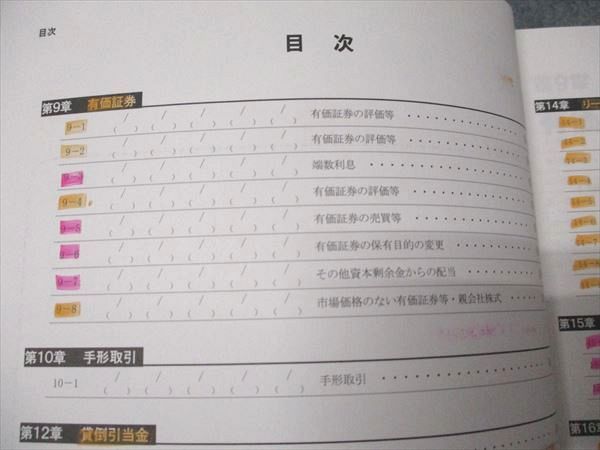 目次
目 次
第9章 有価証券
9-1 ( / ) ( / ) ( / ) ( / ) ( / ) 有価証券の評価等
9-2 ( / ) ( / ) ( / ) ( / ) ( / ) 有価証券の評価等
9-3 ( / ) ( / ) ( / ) ( / ) ( / ) 端数利息
9-4 ( / ) ( / ) ( / ) ( / ) ( / ) 有価証券の評価等
9-5 ( / ) ( / ) ( / ) ( / ) ( / ) 有価証券の売買等
9-6 ( / ) ( / ) ( / ) ( / ) ( / ) 有価証券の保有目的の変更
9-7 ( / ) ( / ) ( / ) ( / ) ( / ) その他資本剰余金からの配当
9-8 ( / ) ( / ) ( / ) ( / ) ( / ) 市場価格のない有価証券等・親会社株式
第10章 手形取引
10-1 ( / ) ( / ) ( / ) ( / ) ( / ) 手形取引
第12章 貸倒引当金
第14章 リー
14-1
14-2
14-3
14-4
14-5
14-6
14-7
14-8
第15章
第16章